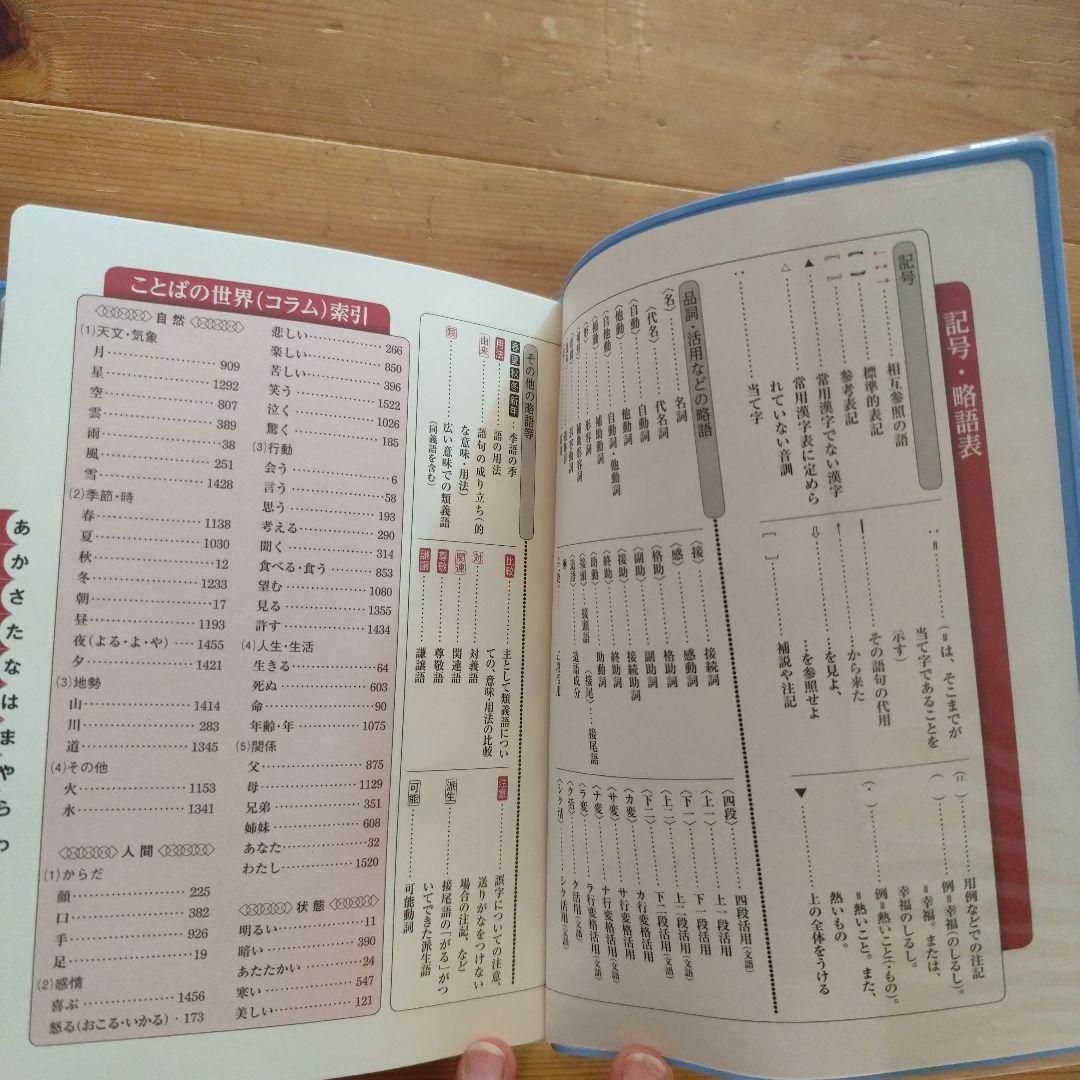 記号・略語表
記号
←→……相互参照の語
【 】……標準的表記
〖 〗……参考表記
▲……常用漢字でない漢字
△……常用漢字表に定めら
れていない音訓
‥……当て字
‥=……(=は、そこまでが
当て字であることを
示す)
その語句の代用
↑……から来た
……を見よ、
⇩……を参照せよ
[ ]……補説や注記
(=)……用例などでの注記
( )……例=幸福(のしるし)。
=幸福。または、
幸福のしるし。
(・)……例=熱いこと(・もの)。
=熱いこと。また、
熱いもの。
▼……上の全体をうける
品詞・活用などの略語
〈名〉……名詞
〈代名〉……代名詞
〈自動〉……自動詞
〈他動〉……他動詞
〈自他動〉……自動詞・他動詞
〈補動〉……補助動詞
〈形〉……形容詞
〈補形〉……補助形容詞
〈接〉……接続詞
〈感〉……感動詞
〈格助〉……格助詞
〈副助〉……副助詞
〈接助〉……接続助詞
〈終助〉……終助詞
〈助動〉……助動詞
〈接頭〉……接頭語 〈接尾〉……接尾語
〈造語〉……造語成分
〈四段〉……四段活用(文語)
〈上一〉……上一段活用
〈上二〉……上二段活用
〈下一〉……下一段活用
〈下二〉……下二段活用
〈カ変〉……カ行変格活用
〈サ変〉……サ行変格活用
〈ナ変〉……ナ行変格活用(文語)
〈ラ変〉……ラ行変格活用(文語)
〈ク活〉……ク活用(文語)
〈シク活〉……シク活用(文語)
その他の略語等
春夏秋冬新年……季語の季
用法……語の用法
由来……語句の成り立ち(的
な意味・用法)
類……広い意味での類義語
(同義語を含む)
比較……主として類義語につい
ての、意味・用法の比較
対……対義語
関連……関連語
尊敬……尊敬語
謙譲……謙譲語
注意……誤字についての注意、
送りがなをつけない
場合の注記、など
派生……接尾語の「がる」がつ
いてできた派生語
可能……可能動詞
ことばの世界(コラム)索引
自然
(1)天文・気象
月……909
星……1292
空……807
雲……389
雨……38
風……251
雪……1428
(2)季節・時
春……1138
夏……1030
秋……12
冬……1233
朝……17
昼……1193
夜(よる・よ・や)……1455
夕……1421
(3)地勢
山……1414
川……283
道……1345
(4)その他
火……1153
水……1341
人間
(1)からだ
顔……225
口……382
手……926
足……19
(2)感情
喜ぶ……1456
怒る(おこる・いかる)・173
悲しい……266
楽しい……850
苦しい……396
笑う……1522
泣く……1026
驚く……185
(3)行動
会う……6
言う……58
思う……193
考える……290
聞く……314
食べる・食う……853
望む……1080
見る……1355
許す……1434
(4)人生・生活
生きる……64
死ぬ……603
命……90
年齢・年……1075
(5)関係
父……875
母……1129
兄弟……351
姉妹……608
あなた……32
わたし……1520
状態
明るい……11
暗い……390
あたたかい……24
寒い……547
美しい……121
あ
か
さ
た
な
は
ま
や
ら
わ